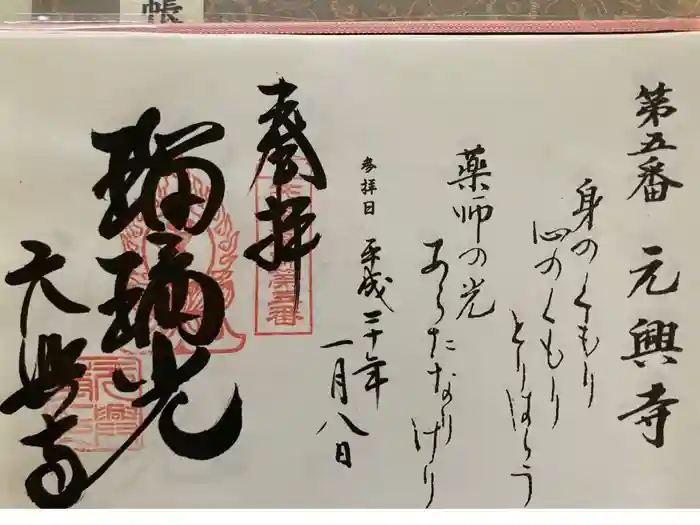 帳
第五番 元興寺
身のくもり
心のくもり
とりはらう
薬師の光
あらたなり
けり
参拝日 平成二十年
一月八日
奉拝
瑠璃光
元興寺